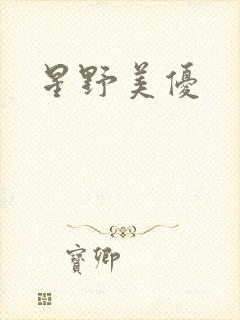 星野美優
寶卿